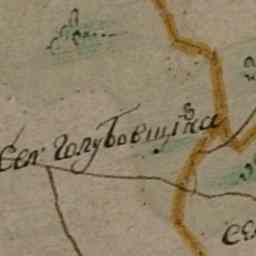 Сел Голубовщина
Се